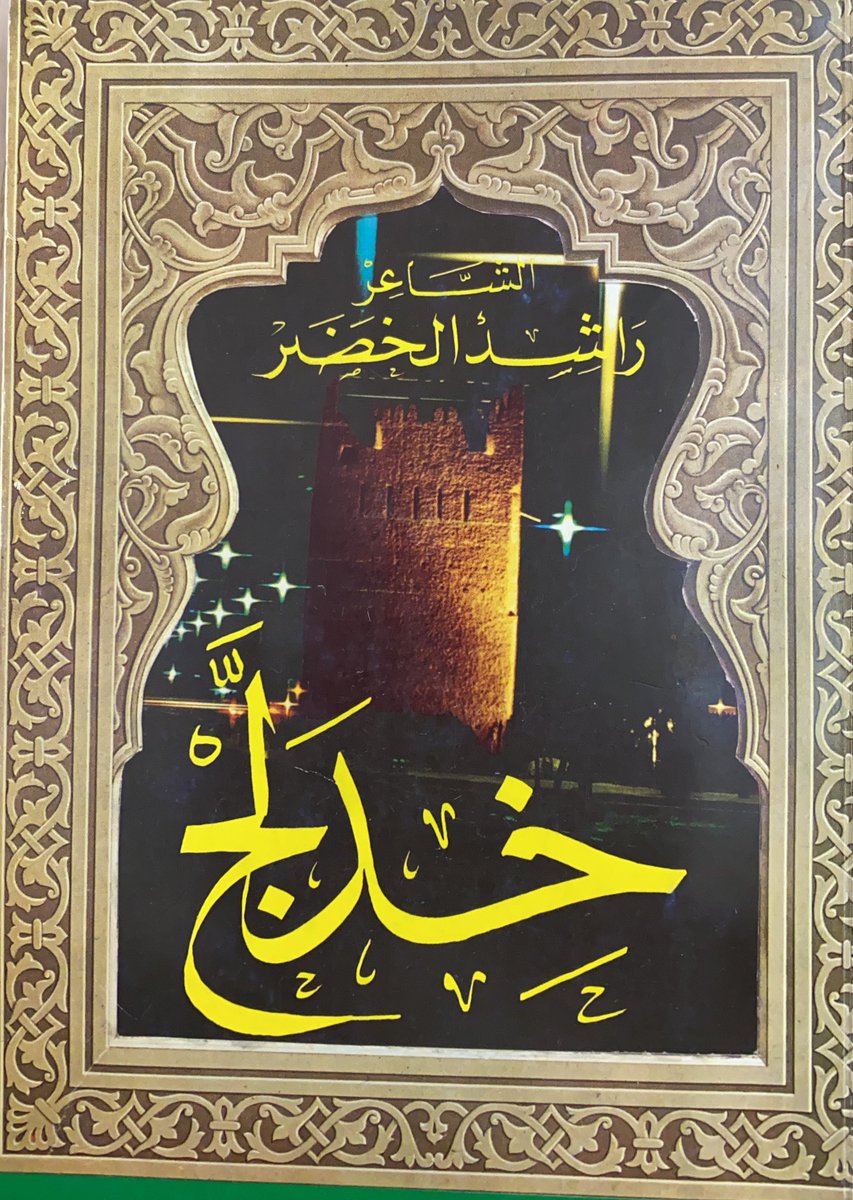 الشَّاعِرْ
رَاشِدْ الخضَرْ
خِدلَّجْ